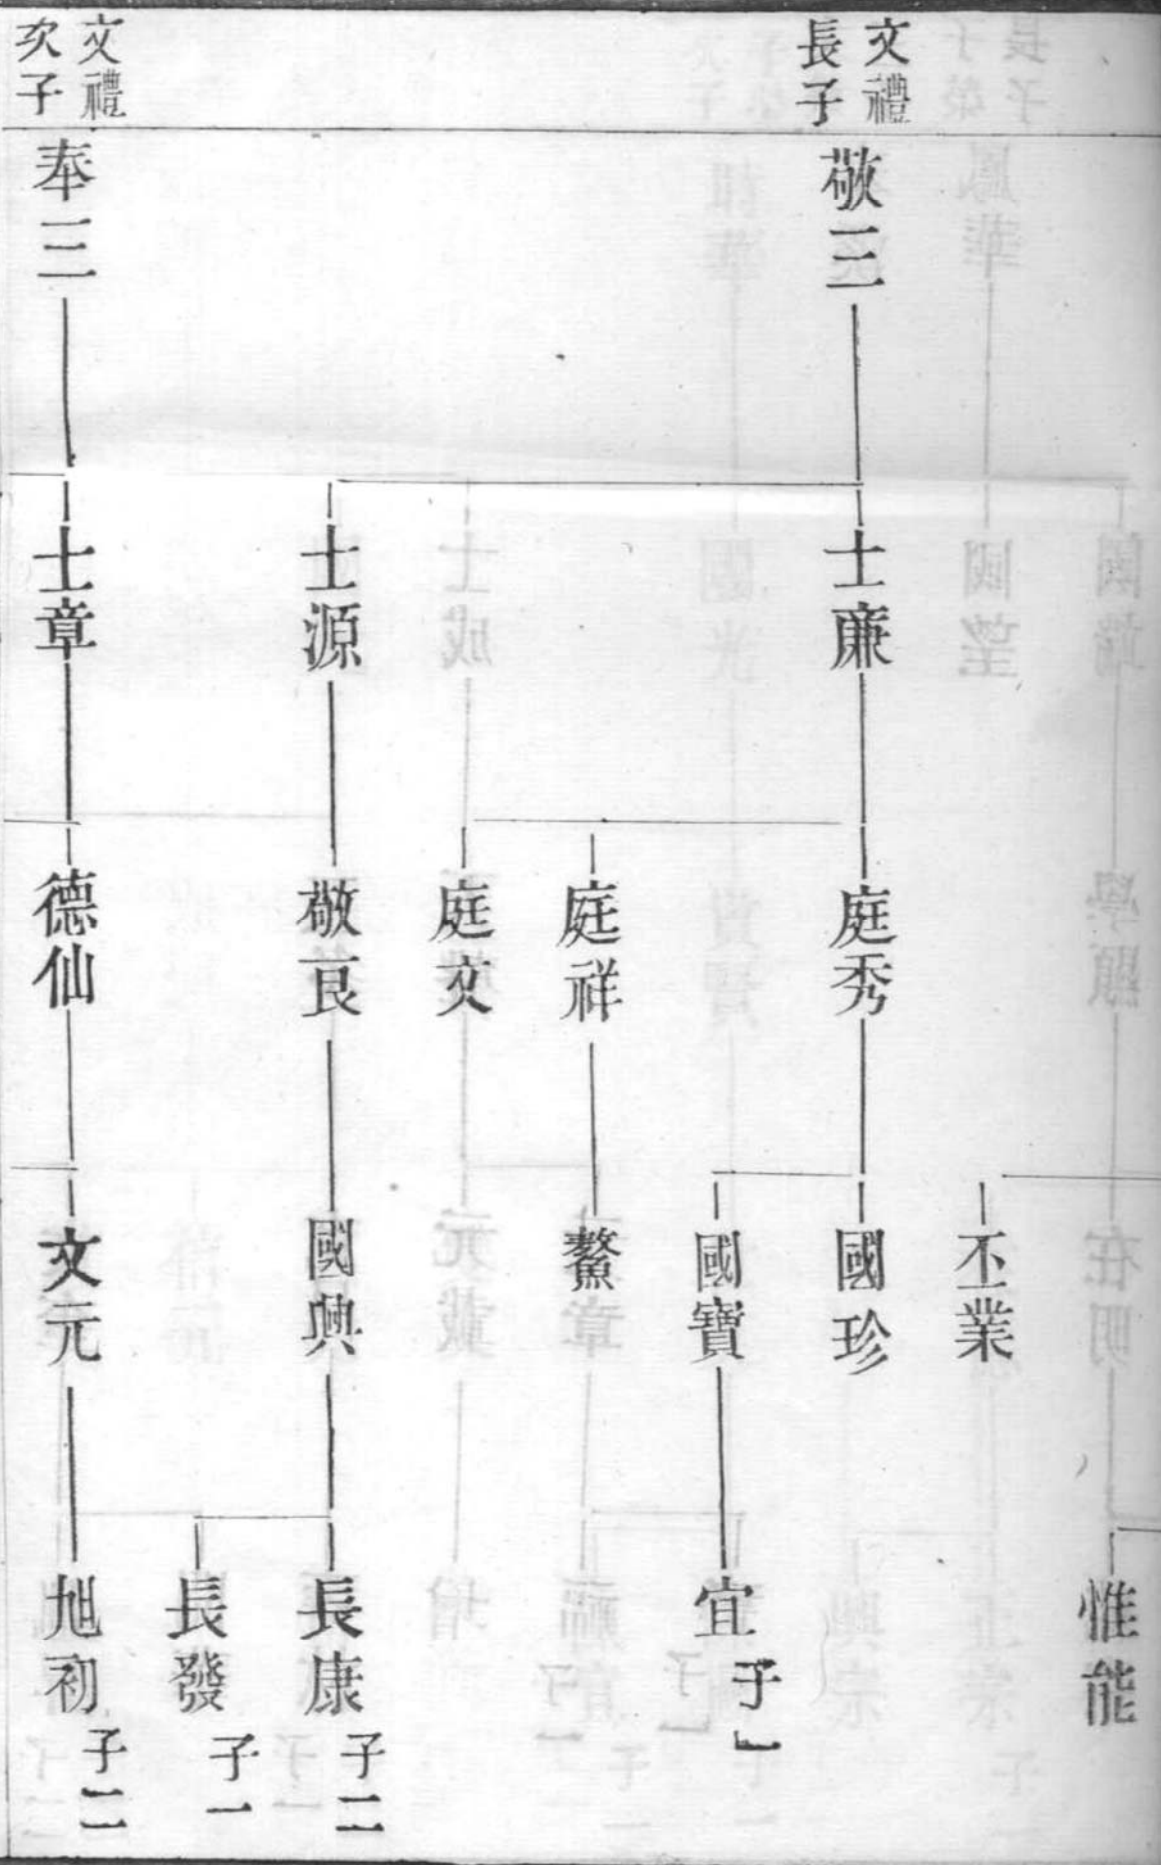 惟能
丕業
文禮
長子
敬三
士廉
庭秀
國珍
國寶
宜
子一
庭祥
鰲
庭文
士源
敬良
國興
長康
子二
長發
子一
文禮
次子
奉三
士章
德仙
文元
旭初
子二